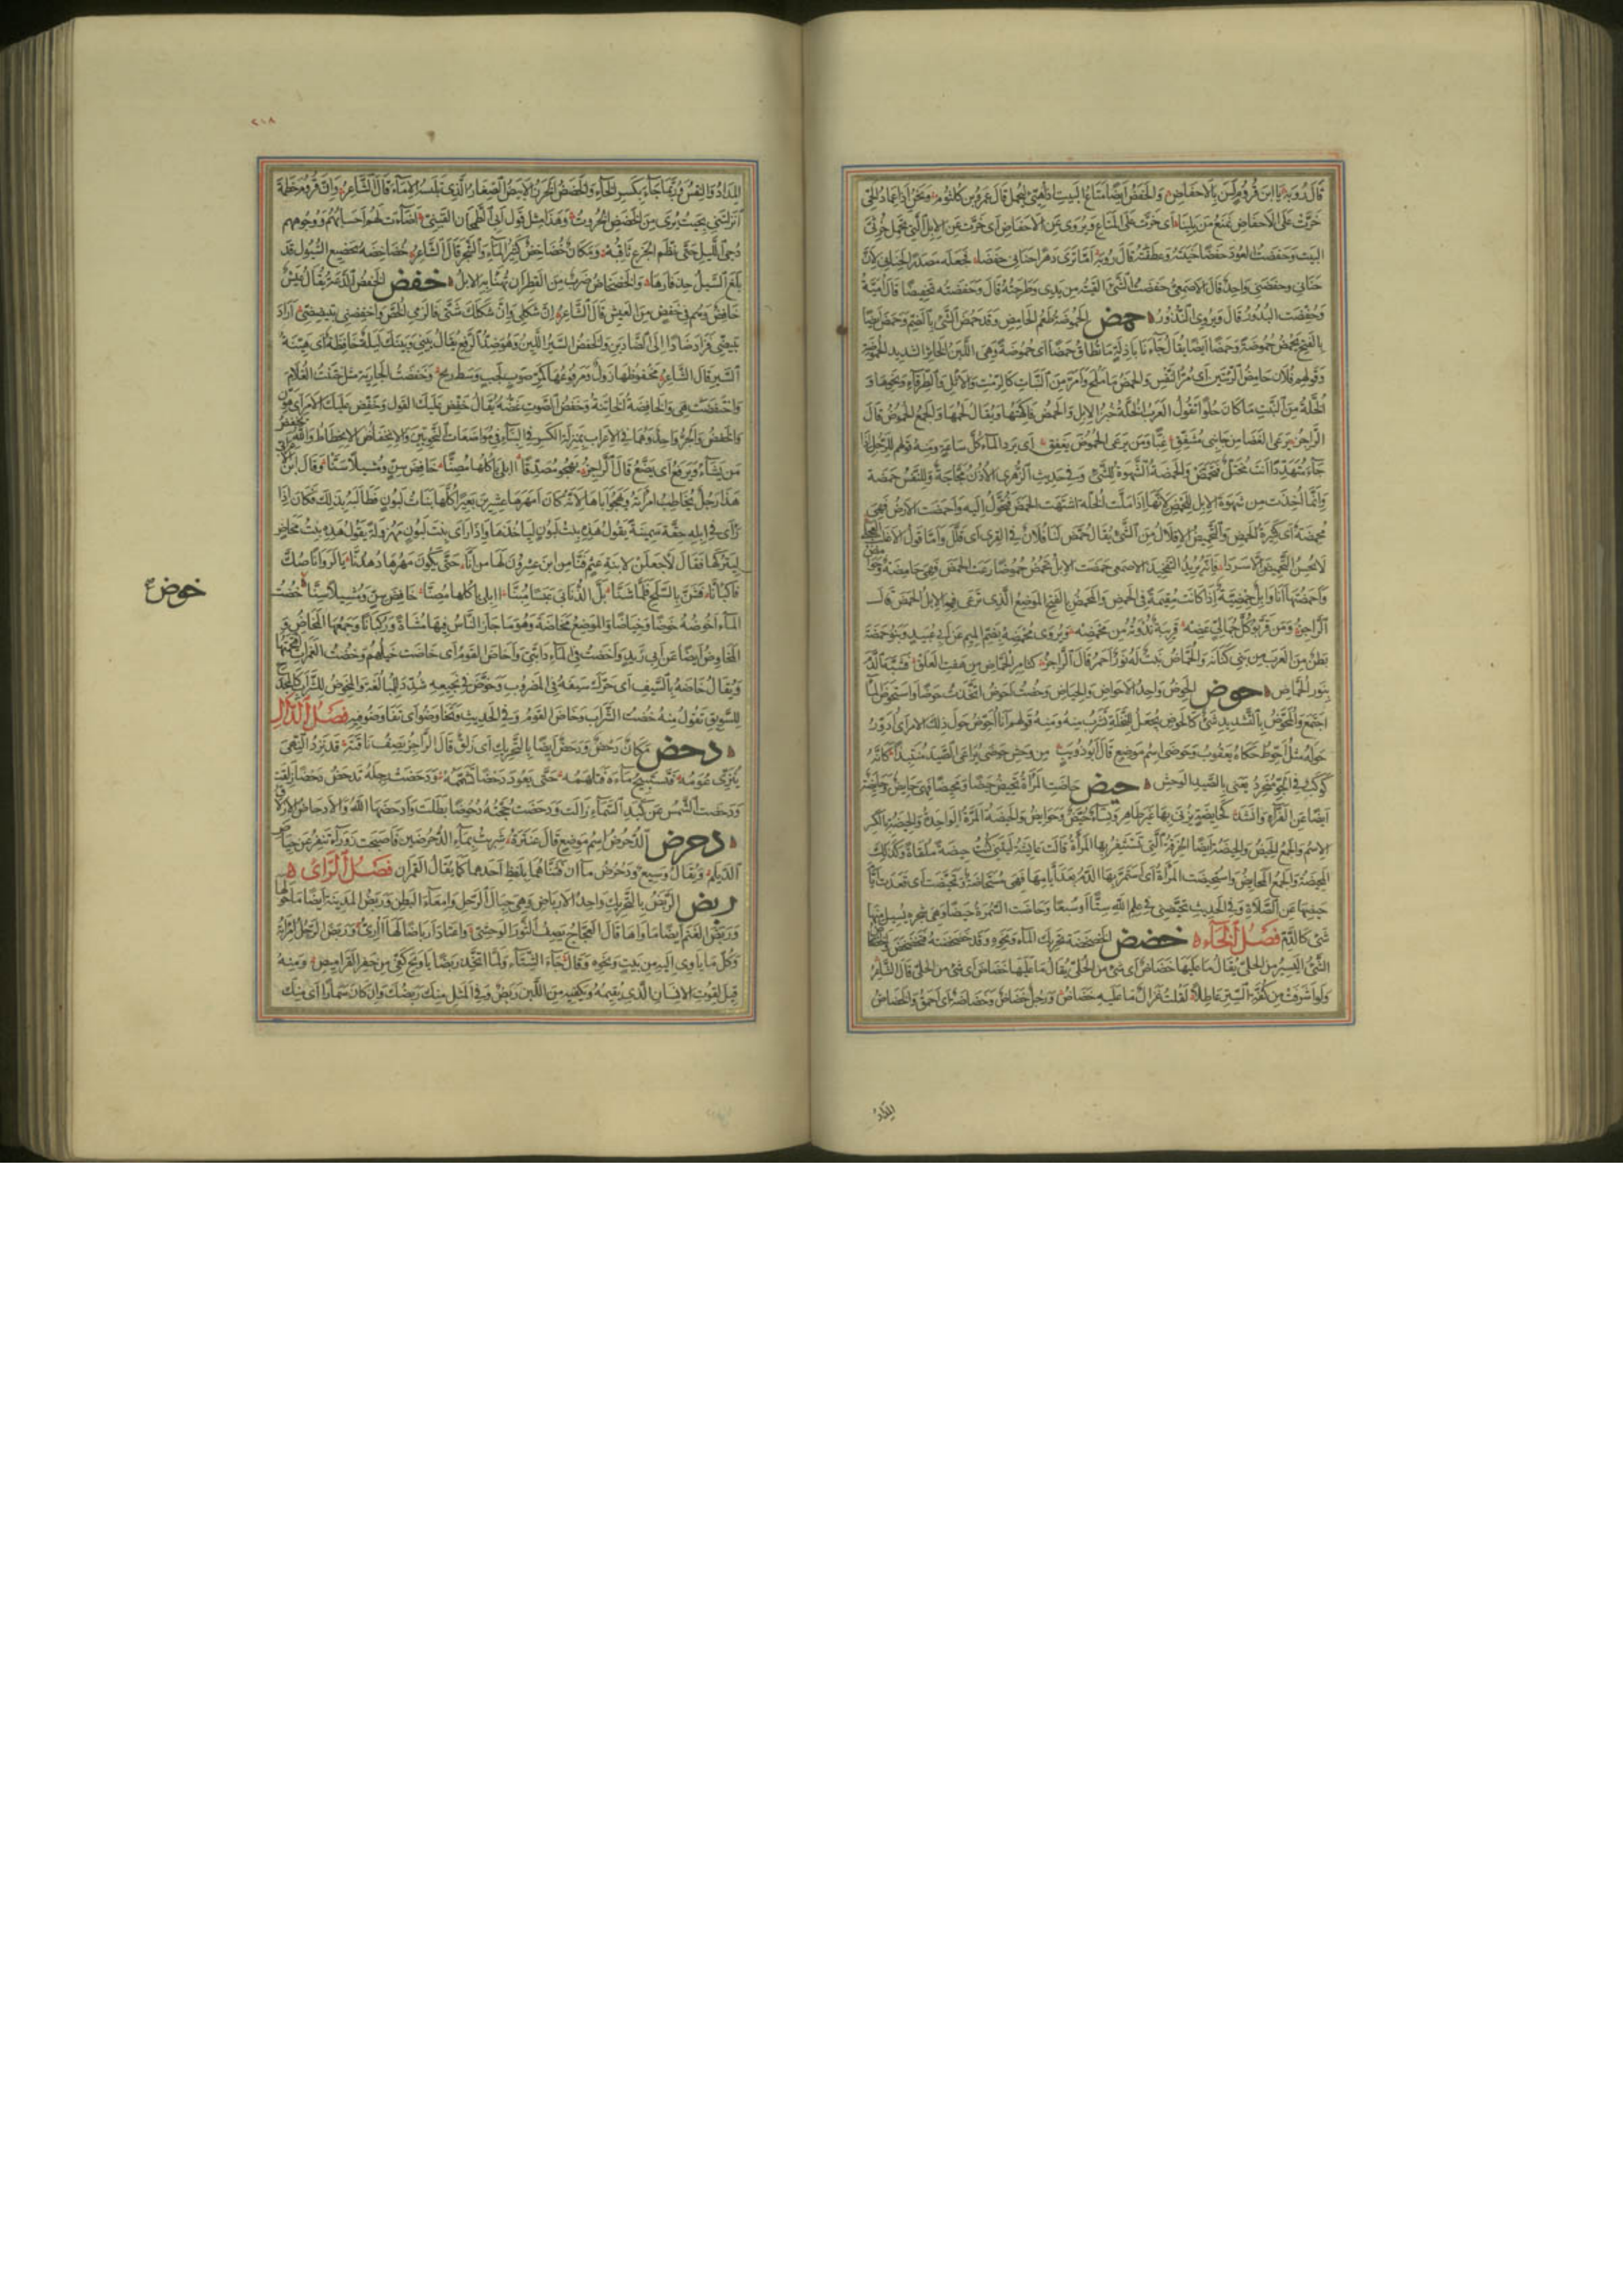 قال رؤبة يا ابن قروم لسن بالاحفاض والحفض ايضا متاع البيت اذا هيئ ليحمل قال عمرو بن كلثوم ونحن اذا عماد الحي
خرت على الاحفاض نمنع من يلينا اى خرت على المتاع ويروى عن الاحفاض اى خرت عن الابل التي تحمل خرثى
البيت وحفضت العود حفضا حنيته وعطفته قال رؤبة اما ترى دهرا حنانى حفضا فجعله مصدرا لحنانى لان
حنانى وحفضنى واحد قال الاصمعى حفضت الشئ القيته من يدى وطرحته قال وحفضته تحفيضا قال امية
وحفضت البدور قال ويروى النذور حمض الحموضة طعم الحامض وقد حمض الشئ بالضم وحمض ايضا
بالفتح يحمض حموضة وحمضا ايضا يقال جاءنا بادلة ما تطاق حمضا اى حموضة وهى اللبن الخاثر الشديد الحموضة
وقولهم فلان حامض الرئتين اى مر النفس والحمض ما ملح وامر من النبات كالرمث والاثل والطرفاء ونحوها و
الخلة من النبت ما كان حلوا تقول العرب الخلة خبز الابل والحمض فاكهتها ويقال لحمها والجمع الحموض قال
الراجز يرعى الغضا من جانبى مشفق غبا ومن يرعى الحموض يغفق اى يرد الماء كل ساعة ومنه قولهم للرجل اذا
جاء متهددا انت مختل فتحمض والحمضة الشهوة للشئ وفى حديث الزهرى الاذن مجاجة وللنفس حمضة
وانما اخذت من شهوة الابل للحمض لانها اذا ملت الخلة اشتهت الحمض فتحول اليه واحمضت الارض فهى
محمضة اى كثيرة الحمض والتحميض الاقلال من الشئ يقال حمض لنا فلان فى القرى اى قلل واما قول الاغلب العجلى
لا يحسن التحميض الا سردا فانه يريد التفخيذ الاصمعى حمضت الابل تحمض حموضا رعت الحمض فهى حامضة وحوامض
واحمضتها انا وابل حمضية اذا كانت مقيمة فى الحمض والمحمض بالفتح الموضع الذى ترعى فيه الابل الحمض قال
الراجز وقربوا كل جمالى عضه قريبة ندوته من محمضه ويروى محمضه بضم الميم عن ابى عبيد وبنو حمضة
بطن من العرب من بنى كنانة والحماض نبت له نور احمر قال الراجز كثامر الحماض من هفت العلق فشبه الدم
بنور الحماض حوض الحوض واحد الاحواض والحياض وحضت احوض اتخذت حوضا واستحوض الماء
اجتمع والمحوض بالتشديد شئ كالحوض يجعل للنخلة تشرب منه ومنه قولهم انا احوض حول ذلك الامر اى ادور
حوله مثل احوط حكاه يعقوب وحوضى اسم موضع قال ابو ذويب من وحش حوضى يراعى الصيد منتبذا كانه
كوكب فى الجو منحرد يعنى بالصيد الوحش حيض حاضت المرأة تحيض حيضا ومحيضا فهى حائض وحائضة
ايضا عن الفراء وانشد كحائضة يزنى بها غير طاهر ونساء حيض وحوائض والحيضة المرة الواحدة والحيضة بالكسر
الاسم والجمع الحيض والحيضة ايضا الخرقة التى تستثفر بها المرأة قالت عائشة ليتنى كنت حيضة ملقاة وكذلك
المحيضة والجمع المحائض واستحيضت المرأة اى استمر بها الدم بعد ايامها فهى مستحاضة وتحيضت اى قعدت ايام
حيضها عن الصلاة وفى الحديث تحيضى فى علم الله ستا او سبعا وحاضت السمرة حيضا وهى شجرة يسيل منها
شئ كالدم فصل الخاء خضض الخضخضة تحريك الماء ونحوه وقد خضخضته فتخضخض
الشئ اليسير من الحلى يقال ما عليها خضاض اى شئ من الحلى قال الشاعر
ولو اشرفت من كفة الستر عاطلا لقلت غزال ما عليه خضاض ورجل خضاض وخضاضة اى احمق والخضاض
المداد
٢٠٨
المداد والنقس وربما جاء بكسر الخاء والخضض الخرز الابيض الصغار الذى تلبسه الاماء قال الشاعر وان قروم خطمة
انزلتنى بحيث يرى من الخضض الخروت وهذا مثل قول ابى الطمحان القينى اضاءت لهم احسابهم ووجوههم
دجى الليل حتى نظم الجزع ثاقبه ومكان خضاخض كثير الماء والشجر قال الشاعر خضاخضة بخضيع السيول قد
بلغ السيل حذفارها والخضخاض ضرب من القطران تهنأ به الابل خفض الخفض الدعة يقال عيش
خافض وهم فى خفض من العيش قال الشاعر ان شكلى وان شكلك شتى فالزمى الخص واخفضى تبيضضى اراد
تبيضى فزاد ضادا الى الضادين والخفض السير اللين وهو ضد الرفع يقال بينى وبينك ليلة خافضة اى هينة
السير قال الشاعر مخفوضها زول ومرفوعها كمر صوب لجب وسط ريح وخفضت الجارية مثل ختنت الغلام
واختفضت هى والخافضة الخاتنة وخفض الصوت غضه يقال خفض عليك القول وخفض عليك الامر اى هون
والخفض والجر واحد وهما فى الاعراب بمنزلة الكسر فى البناء فى مواضعات النحويين والانخفاض الانحطاط والله يخفض
من يشاء ويرفع اى يضع قال الراجز يهجو مصدقا اابلى تاكلها مصنا خافض سن ومشيلا سنا وقال ابن الاعرابى
هذا رجل يخاطب امراته ويهجو اباها لانه كان امهرها عشرين بعيرا كلها بنات لبون فطالبه بذلك فكان اذا
راى فى ابله حقة سمينة يقول هذه بنت لبون لياخذها واذا راى بنت لبون مهزولة يقول هذه بنت مخاض
ليتركها فقال لاجعلن لابنة عثم فنا من اين عشرون لها من انى حتى يكون مهرها دهدنا يا كروانا صك
فاكبانا فشن بالسلح فلما شنا بل الذنابى عبسا مبنا اابلى تاكلها مصنا خافض سن ومشيلا سنا خضت
الماء اخوضه خوضا وخياضا والموضع مخاضة وهو ما جاز الناس فيها مشاة وركبانا وجمعها المخاض و
المخاوض ايضا عن ابى زيد واخضت فى الماء دابتى واخاض القوم اى خاضت خيلهم وخضت الغمرات اقتحمتها
ويقال خاضه بالسيف اى حرك سيفه فى المضروب وخوض فى نجيعه شدد للمبالغة والمخوض للشراب كالمجدح
للسويق تقول منه خضت الشراب وخاض القوم فى الحديث وتخاوضوا اى تفاوضوا فيه فصل الدال
دحض مكان دحض ودحض ايضا بالتحريك اى زلق قال الراجز يصف ناقته قد ترد النهى
تنزى عومه فتستبيح ماءه فتلهمه حتى يعود دحضا تشممه ودحضت رجله تدحض دحضا زلقت
ودحضت الشمس عن كبد السماء زالت ودحضت حجته دحوضا بطلت وادحضها الله والادحاض الازلاق
دحرض الدحرض اسم موضع قال عنترة شربت بماء الدحرضين فاصبحت زوراء تنفر عن حياض
الديلم ويقال وسيع ودحرض ماان ثناهما بلفظ احدهما كما يقال القمران فصل الراى
ربض الربض بالتحريك واحد الارباض وهى حبال الرحل وامعاء البطن وربض المدينة ايضا ما حولها
وربض الغنم ايضا ماواها قال العجاج يصف الثور الوحشى واعتاد ارباضا لها آرى وربض الرجل امراته
وكل ما ياوى اليه من بيت ونحوه وقال جاء الشتاء ولما اتخذ ربضا يا ويح كفى من حفر القراميص ومنه
قيل لقوت الانسان الذى يقيمه ويكفيه من اللبن ربض وفى المثل منك ربضك وان كان سمارا اى منك
خوض